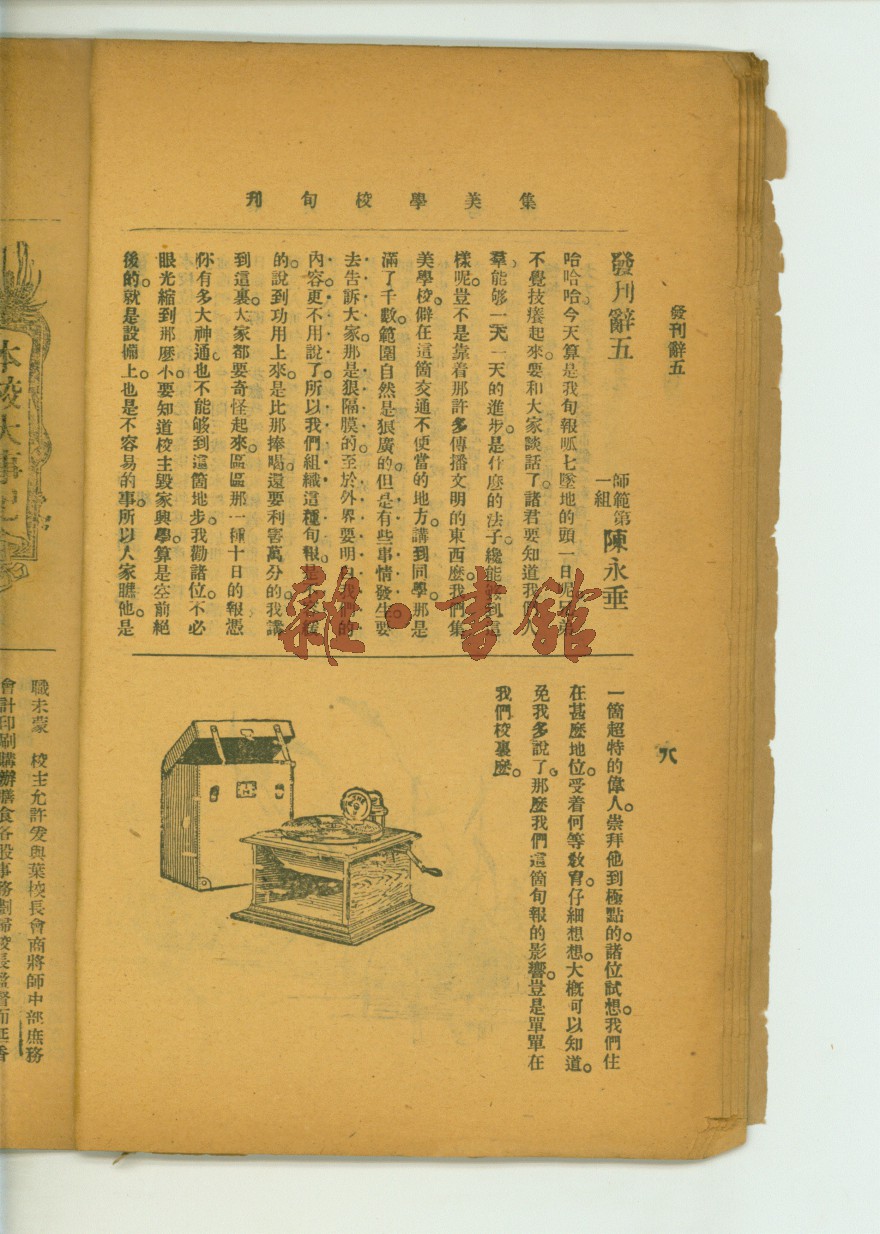 集美學校旬刊
發刊辭五
八
發刊辭五
師範第一組 陳永垂
哈哈哈。今天算是我旬報呱七墜地的頭一日呢。兄弟
不覺技癢起來。要和大家談話了。諸君要知道我們人
羣。能够一天一天的進步。是什麽的法子。纔能够到這
樣呢。豈不是靠着那許多傳播文明的東西麽。我們集
美學校。僻在這箇交通不便當的地方。講到同學。那是
滿了千數。範圍自然是狠廣的。但是有些事情發生。要
去告訴大家。那是狠隔膜的。至於外界要明白我們的
內容。更不用說了。所以我們組織這種旬報。是不容緩
的。說到功用上來。是比那捧喝。還要利害萬分的。我講
到這裏。大家都要奇怪起來。區區那一種十日的報。憑
你有多大神通。也不能够到這箇地步。我勸諸位。不必
眼光縮到那麽小。要知道校主毀家興學。算是空前絕
後的。就是設備上。也是不容易的事。所以人家瞧他。是
一箇超特的偉人。崇拜他到極點的。諸位試想。我們住
在甚麽地位。受着何等敎育。仔細想想。大槪可以知道。
免我多說了。那麽我們這箇旬報的影響。豈是單單在
我們校裏麽。
本校大事記
職未蒙 校主允許爰與葉校長會商將師中部庶務
會計印刷購辦膳食各股事務劃歸校長監督而
雜·書館